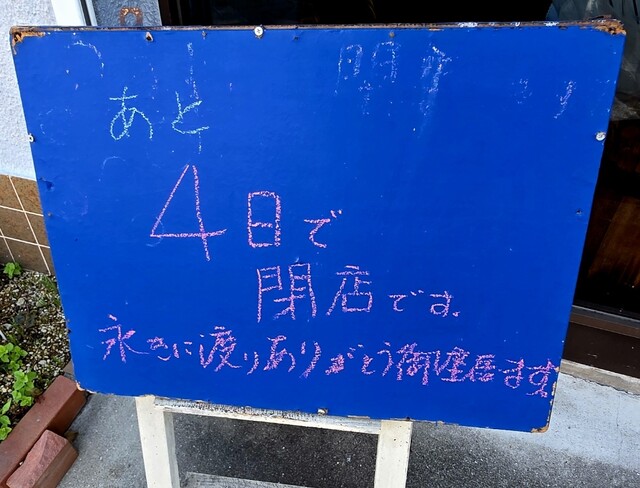 あと
4日で
閉店です。
永きに渡りありがとう御座居ます